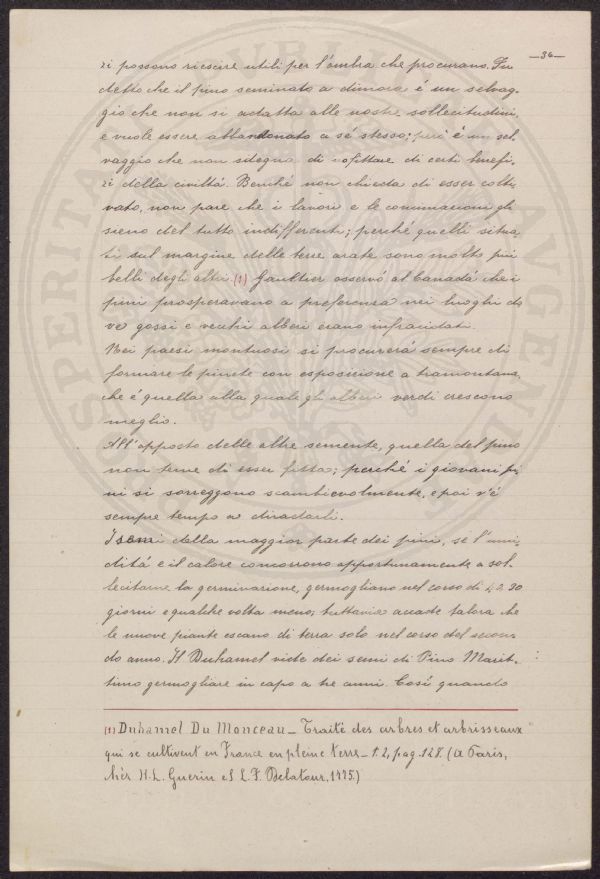 —36—
zi possono riescire utili per l'ombra che procurano. Fu
detto che il pino seminato a dimora é un selvag-
gio che non si adatta alle nostre sollecitudini,
e vuole essere abbandonato a sé stesso; però é un sel-
vaggio che non sdegna di di certi benefi-
zi della civiltá. Benché non chieda di esser colti-
vato, non pare che i lavori e le concimazioni gli
sieno del tutto indifferenti; perché quelli situa-
ti sul margine delle terre arate sono molto piú
belli degli altri.(1) Gaultier osservó al Canadá che i
pini prosperavano a preferenza nei luoghi do-
ve grossi e vecchi alberi erano infraciditi.
Nei paesi montuosi si procurerá sempre di
formare le pinete con esposizione a tramontana,
che é quella alla quale gli alberi verdi crescono
meglio.
All'opposto delle altre semente, quella del pino
non teme di esser fitta; perché i giovani pi-
ni si sorreggono scambievolmente, e poi v'é
sempre tempo a diradarli.
I semi della maggior parte dei pini, se l'umi-
ditá e il calore concorrono opportunamente a sol-
lecitarne la germinazione, germogliano nel corso di
giorni e qualche volta meno; tuttavia accade talora che
le nuove piante escano di terra solo nel corso del secon-
do anno. Il Duhamel vide dei semi di Pino Marit-
timo germogliare in capo a tre anni. Cosí quando
(1) Duhamel Du Monceau — Traité des arbres et arbrisseaux
qui se cultivent en France en pleine terre — t. 2, pag. 128. (A Paris,
chèz H. L. Guerin et L. F. Delatour, 1775.)
SPERITAS PVBLICA AVGENDA